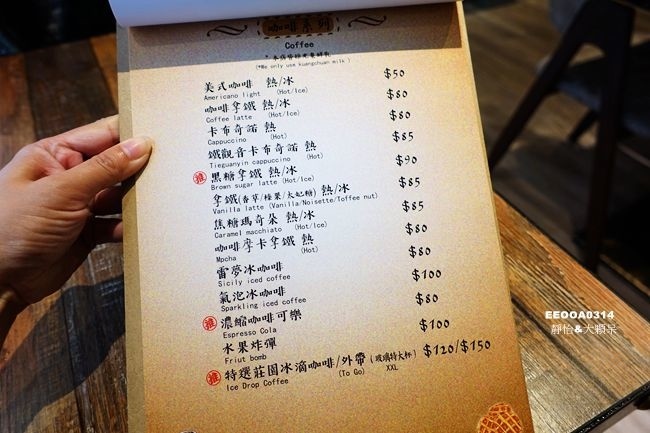 咖啡系列
Coffee
(*We only use kuangchuan milk )
美式咖啡 熱/冰 $50
Americano light (Hot/Ice)
咖啡拿鐵 熱/冰 $80
Coffee latte (Hot/Ice)
卡布奇諾 熱 $80
Cappuccino (Hot)
鐵觀音卡布奇諾 熱 $85
Tieguanyin cappuccino (Hot)
推 黑糖拿鐵 熱/冰 $90
Brown sugar latte (Hot/Ice)
拿鐵(香草/榛果/太妃糖) 熱/冰 $85
Vanilla latte (Vanilla/Noisette/Toffee nut)
焦糖瑪奇朵 熱/冰 $85
Caramel macchiato (Hot/Ice)
咖啡摩卡拿鐵 熱 $80
Mocha (Hot)
雷夢冰咖啡 $80
Sicily iced coffee
氣泡冰咖啡 $100
Sparkling iced coffee
推 濃縮咖啡可樂 $80
Espresso Cola
水果炸彈 $100
Friut bomb
推 特選莊園冰滴咖啡/外帶(玻璃特大杯) $120/$150
Ice Drop Coffee (To Go) XXL
EEOOA0314
靜怡&大顆呆